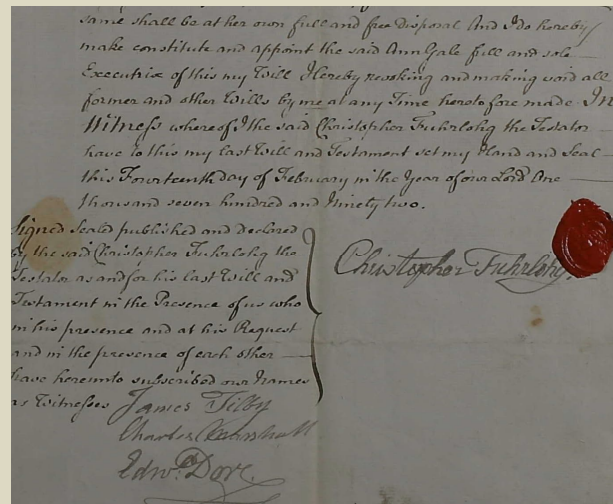 same shall be at her own full and free Disposal And I do hereby
make constitute and appoint the said Ann Gale full and sole
Executrix of this my Will Hereby revoking and making void all
former and other Wills by me at any Time heretofore made In
Witness whereof I the said Christopher Fuhrlohg the Testator
have to this my last Will and Testament set my Hand and Seal
this Fourteenth day of February in the Year of our Lord One
thousand seven hundred and Ninety two.
Signed Sealed published and declared
by the said Christopher Fuhrlohg the
Testator as and for his last Will and
Testament in the Presence of us who
in his presence and at his Request
and in the presence of each other
have hereunto subscribed our Names
as Witnesses
Christopher Fuhrlohg.
James Tilby
Charles Marshall
Edwd. Dove